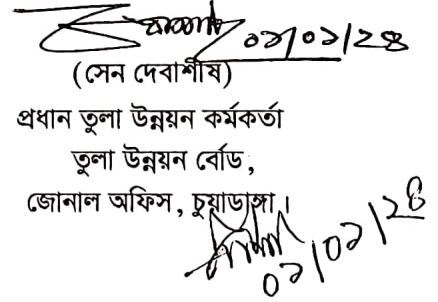 ০১/০১/২৪
(সেন দেবাশীষ)
প্রধান তুলা উন্নয়ন কর্মকর্তা
তুলা উন্নয়ন র্বোড,
জোনাল অফিস, চুয়াডাঙ্গা।
০১/০১/২৪